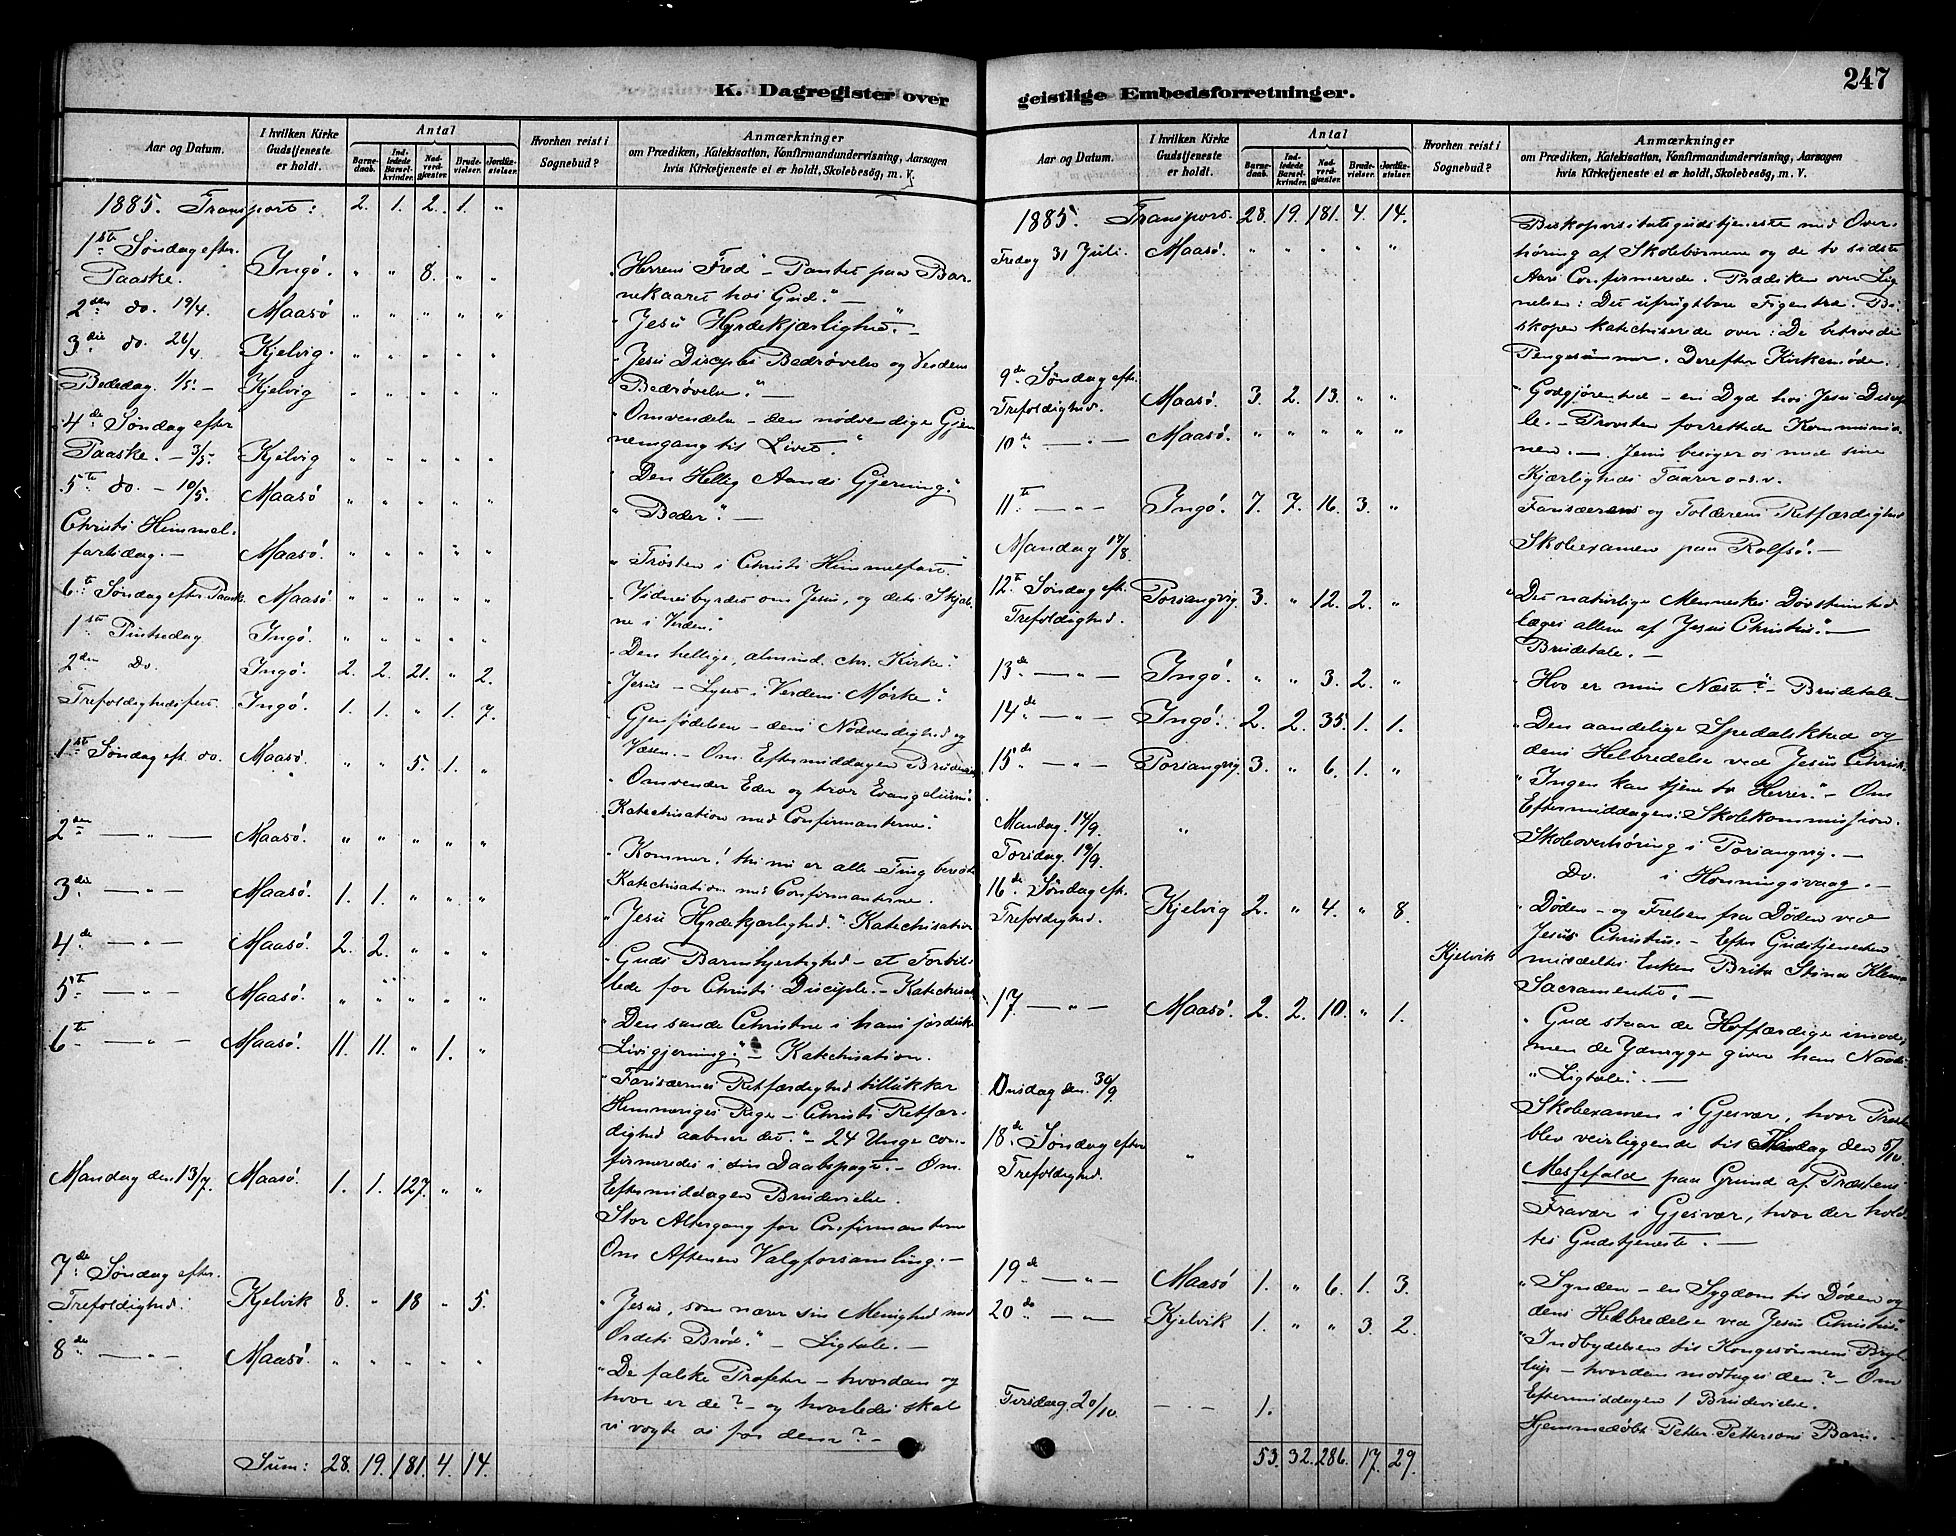 247
K. Dagregister over
geistlige Embedsforretninger.
Aar og Datum.
I hvilken Kirke Gudstjeneste er holdt.
Antal
Barnedaab.
Indledede Barselkvinder.
Nadverdgjæster.
Brudevielser.
Jordfæstelser.
Hvorhen reist i Sognebud?
Anmærkninger
om Prædiken, Katekisation, Konfirmandundervisning, Aarsagen
hvis Kirketjeneste ei er holdt, Skolebesøg, m. V.
1885. Transport: 2. 1. 2. 1. "
1ste Søndag efter
Paaske. Ingø. " " 8. " "
"Herrens Fred" - Pantet paa Bar-
nekaaret hos Gud." -
2den do. 19/4. Maasø " " " " "
"Jesu Hyrdekjærlighed". -
3die do. 26/4 Kjelvig. " " " " "
"Jesu Disciples Bedrøvelse og Verdens
Bededag. 1/5. - Kjelvig " " " " "
Bedrøvelse." -
4de Søndag efter
"Omvendelse - den nødvendige Gjen-
Paaske. - 3/5. Kjelvig " " " " "
nemgang til Livet."
5te do. - 10/5. Maasø " " " " "
"Den Hellig Aands Gjerning."
Christi Himmel-
"Beder". -
fartsdag. - Maasø. " " " " "
"Trøsten i Christi Himmelfart."
6te Søndag efter Paaske. Maasø " " " " "
"Vidnesbyrdet om Jesus, og dets Skjæb-
ne i Verden."
1ste Pintsedag Ingø. " " " " "
"Den hellige, almind. chr. Kirke."
2den Do. Ingø. 2. 2. 21. " 2.
"Jesus - Lyset i Verdens Mørke."
Trefoldighedsfest. Ingø. 1. 1. " 1. 7.
"Gjenfødelsen - dens Nødvendighed og
1ste Søndag eft. do. Maasø. " " 5. 1. "
Væsen. - Om Eftermiddagen
"Omvender Eder og tror Evangelium."
Katechisation med Confirmanterne."
2den — " — Maasø. " " " " "
"Kommer! thi nu er alle Ting beredte
3die — " — Maasø. 1. 1. " " "
Katechisation med Confirmanterne.
"Jesu Hyrdekjærlighed." Katechisation
4de — " — Maasø. 2. 2. " " "
"Guds Barmhjertighed - et Forbil-
5te — " — Maasø. " " " " "
lede for Christi Disciple. - Katechisat.
6te — " — Maasø. 11. 11. " 1. "
"Den sande Christne i hans jordiske
Livsgjerning." - Katechisation.
"Farisæernes Retfærdighed tillukker
Himmeriges Rige - Christi Retfær-
dighed aabner det." - 24 Unge con-
firmeredes i sin Daabspagt. - Om
Mandag den 13/7. Maasø. 1. 1. 127. " "
Eftermiddagen Brudevielse.
Stor Altergang for Confirmanterne
Om Aftenen Valgforsamling. -
7de Søndag efter
Trefoldighed. Kjelvik 8. " 18 " 5.
"Jesus, som nærer sin Menighed med
Ordets Brød." - Ligtale. -
8de — " — Maasø. " " " " "
"De falske Profeter - hvordan og
hvor er de? - og hvorledes skal
vi vogte os for dem? -
Sum: 28. 19. 181. 4. 14.
Aar og Datum.
I hvilken Kirke Gudstjeneste er holdt.
Antal
Barnedaab.
Indledede Barselkvinder.
Nadverdgjæster.
Brudevielser.
Jordfæstelser.
Hvorhen reist i Sognebud?
Anmærkninger
om Prædiken, Katekisation, Konfirmandundervisning, Aarsagen
hvis Kirketjeneste ei er holdt, Skolebesøg, m. V.
1885. Transport. 28. 19. 181. 4. 14.
Fredag 31 Juli. Maasø. " " " " "
Bispevisitatsgudstjeneste med Over-
høring af Skolebørnene og de to sidste
Aars Confirmerede. Prædiken over Lig-
nelsen: Det ufrugtbare Figentræ. Bi-
skopen katechiserede over: De betroede
Pengesummer. Derefter Kirkemøde.
9de Søndag eft.
Trefoldighed. Maasø. 3. 2. 13. " "
"Godgjørenhed - en Dyd hos Jesu Discip-
le. - Provsten forrettede Kommunio-
10de — " — Maasø. " " " " "
nen. - Jesus besøger os med sine
Kjærligheds Taarer o.s.v.
11te — " — Ingø. 7. 7. 16. 3. "
Farisæerens og Tolderens Retfærdighed
Mandag 17/8.
Skoleexamen paa Rolfsø. -
12te Søndag eft.
Trefoldighed. Porsangvig. 3. " 12. 2. "
"Det naturlige Menneskes Døvstumhed
læges allene af Jesus Christus". -
Brudetale. -
13de — " — Ingø. " " 3. 2. "
"Hvo er min Næste" - Brudetale
14de — " — Ingø. 2. 2. 35. 1. 1.
"Den aandelige Spedalskhed og
dens Helbredelse ved Jesus Christ.
15de — " — Porsangvig. 3. " 6. 1. "
"Ingen kan tjene to Herrer." - Om
Eftermiddagen: Skolekommission.
Mandag. 14/9. "
Skoleoverhøring i Porsangvig. -
Torsdag. 19/9.
Do. i Honningsvaag. -
16de Søndag eft.
Trefoldighed. Kjelvig 2. " 4. " 8.
"Døden - og Frelsen fra Døden ved
Jesus Christus. - Efter Gudstjenesten
Kjelvik
meddeltes Enken Brita Stina
Sacramentet. -
17. — " — Maasø. 2. 2. 10. " 1.
"Gud staar de Hoffærdige imod,
men de Ydmyge giver han Naade.
"Ligtale". -
Onsdag den 30/9
Skoleexamen i Gjesvær, hvor Præsten
blev veirliggende til Mandag den 5/10.
18de Søndag efter
Trefoldighed. "
Messefald paa Grund af Præstens
Fravær i Gjesvær, hvor der hold-
tes Gudstjeneste. -
19de — " — Maasø 1. " 6. 1. 3.
"Synden - en Sygdom til Døden og
dens Helbredelse ved Jesus Christus"
20de — " — Kjelvik 1. " " 3. 2.
"Indbydelsen til Kongesønnens Bryl-
lup - hvordan modtages den? - Om
Eftermiddagen 1 Brudevielse.
Tirsdag 20/10. — " — 1.
Hjemmedøbt Petter Pettersens Barn.
53. 32. 286. 17. 29.